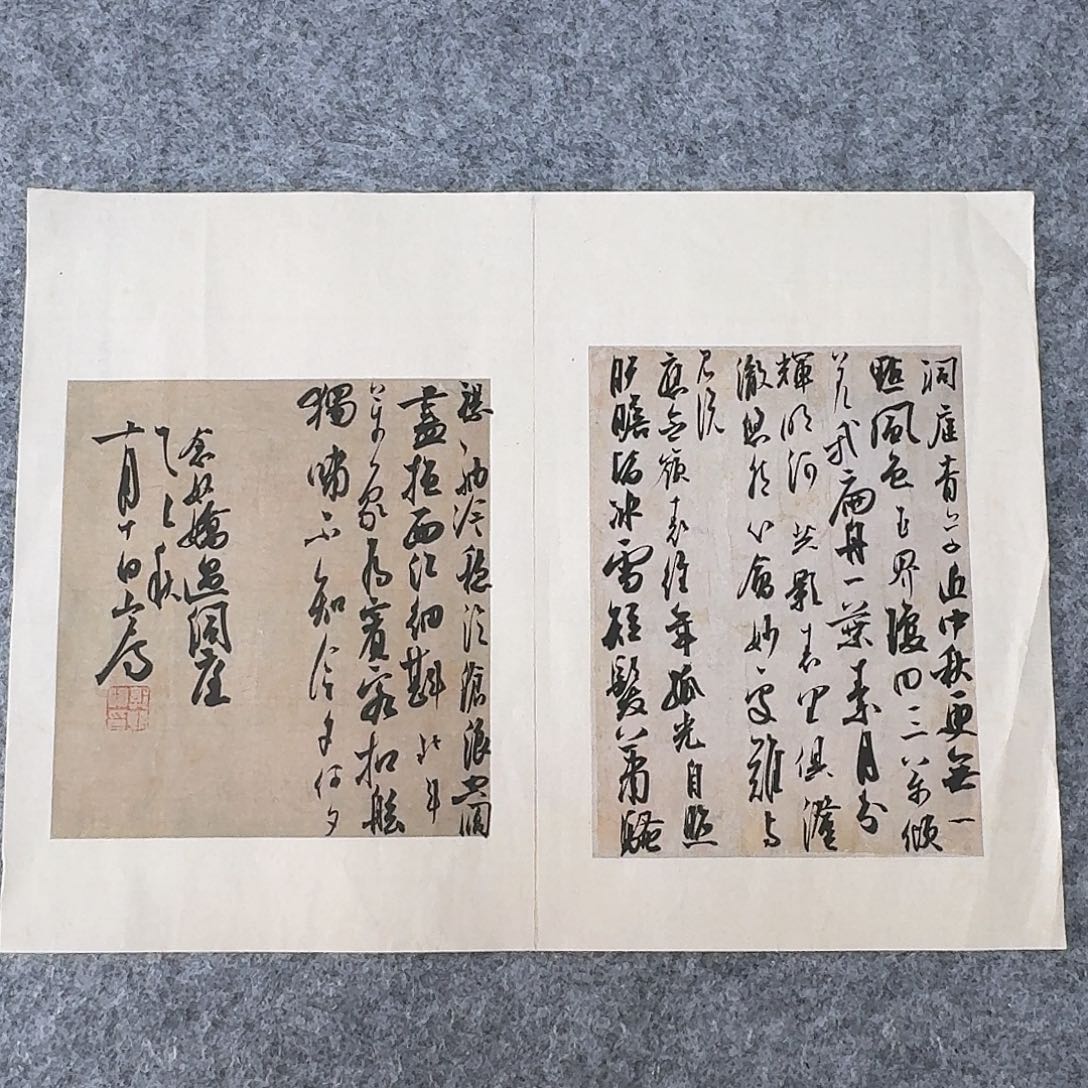 洞庭青草近中秋更無一
點風色玉界瓊田三萬頃
著我扁舟一葉素月分
輝明河共影表里俱澄
澈悠然心會妙處難與
君説
應念嶺表經年孤光自照
肝膽皆冰雪短髮蕭騷
襟袖冷穩泛滄浪空闊
盡挹西江細斟北斗
萬象為賓客扣舷
獨嘯不知今夕何夕
念奴嬌過洞庭
秋
十月十日